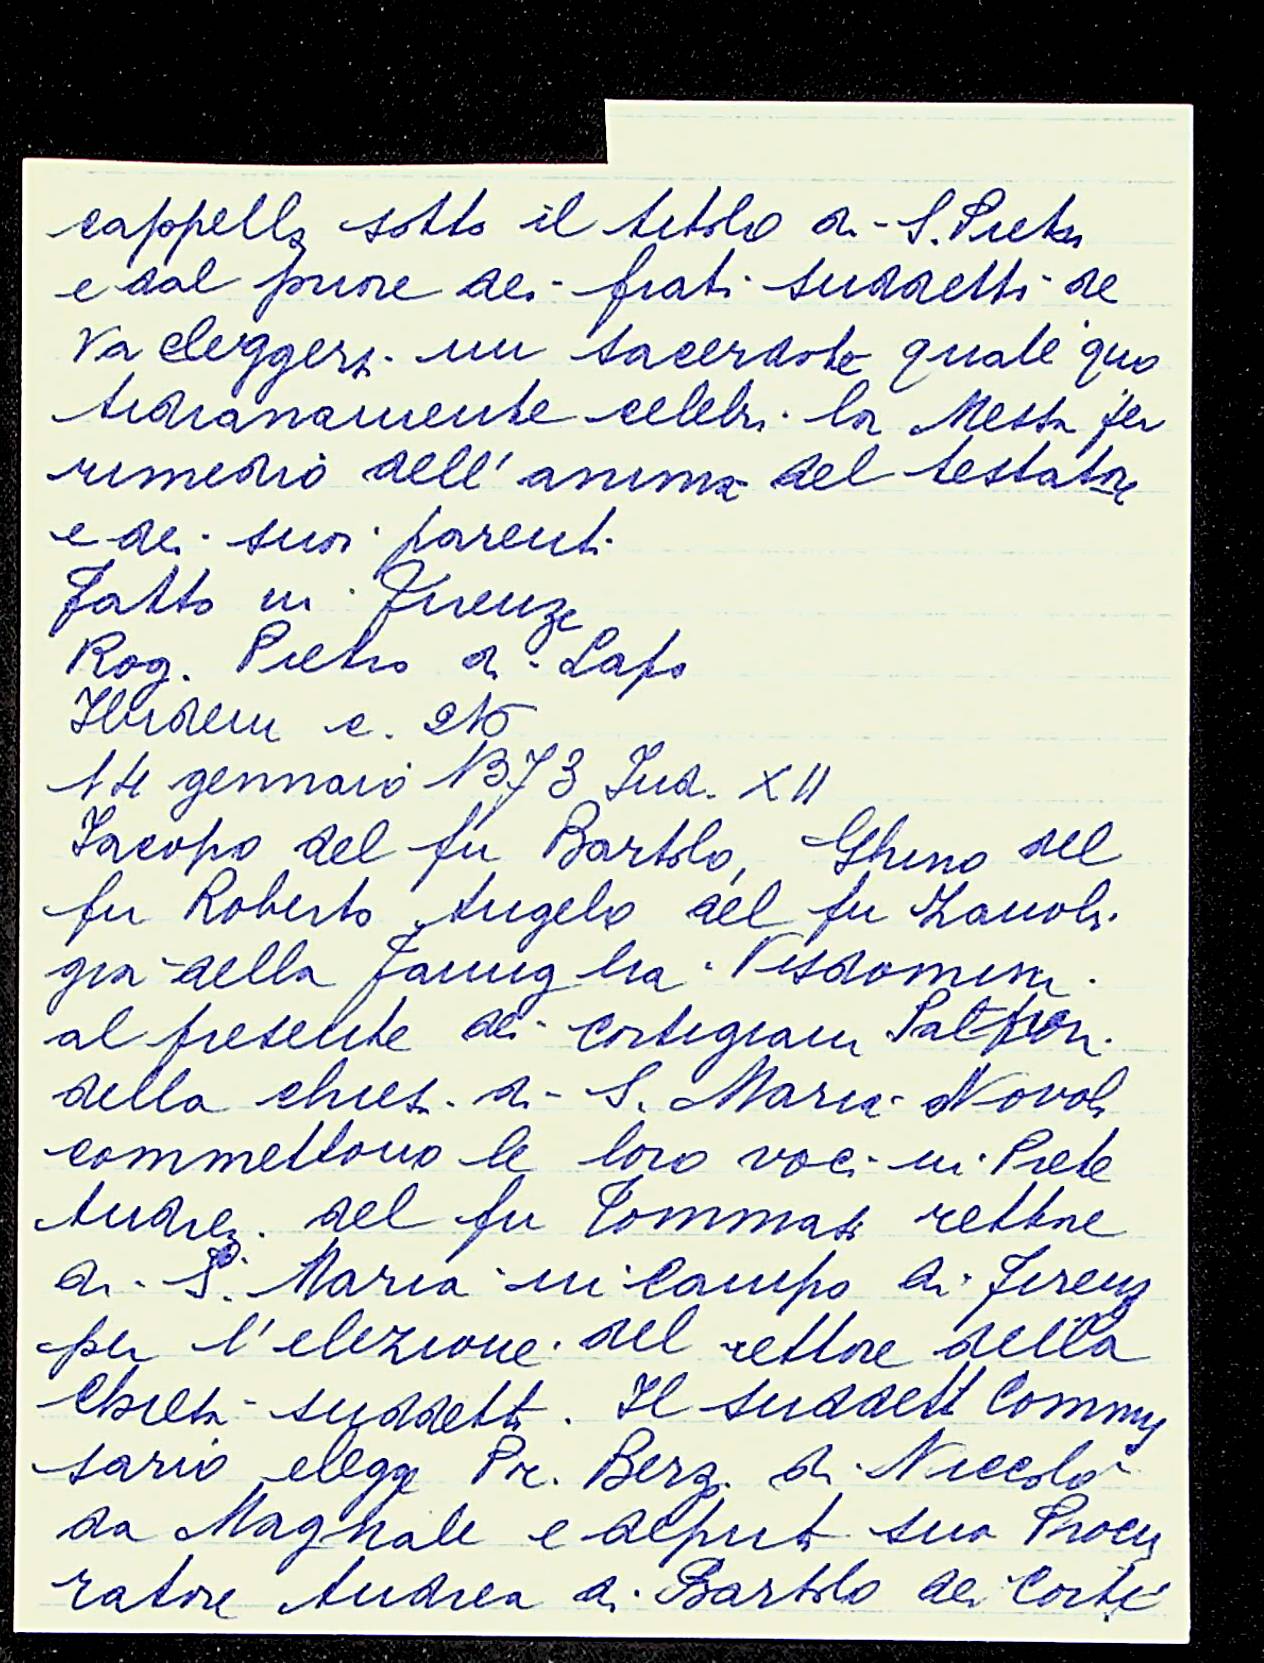 cappella sotto il titolo di S. Pietro
e dal priore dei frati suddetti de
va eleggersi un sacerdote quale quo
tidianamente celebri la Messa per
rimedio dell'anima del testatore
e dei suoi parenti
Fatto in Firenze
Rog. Pietro di Lapo
Ibidem c. 215
14 gennaio 1373 Ind. XII
Iacopo del fu Bartolo, Ghino del
fu Roberto Angelo del fu Zanobi
già della Famiglia Visdomini
al presente dei Cortigiani Patroni
della chiesa di S. Maria Novoli
commettono le loro voci in Prete
Andrea del fu Tommaso rettore
di S. Maria in Campo di Firenze
per l'elezione del rettore della
Chiesa suddetta. Il suddett Commis
sario elegge Pr. Berz. di Niccolò
da Magnale e deputa suo Procu
ratore Andrea di Bartolo dei Corti